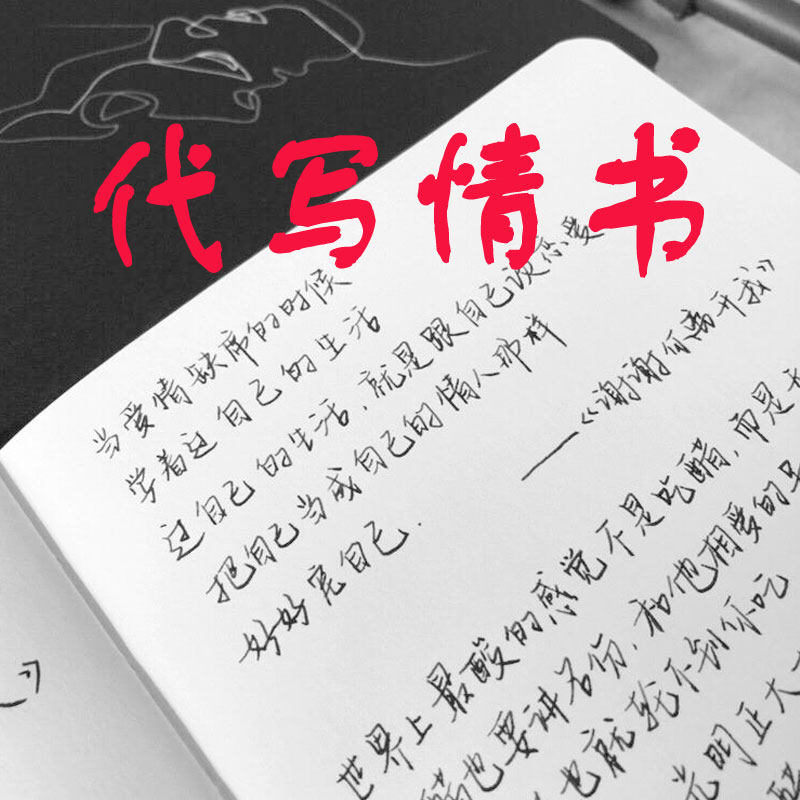 代写情书
当爱情缺席的时候
学着过自己的生活
过自己的生活，就是跟自己谈恋爱
把自己当成自己的情人那样
好好宠自己.
——《谢谢你离开我》
世界上最酸的感觉不是吃醋，而是
醋也要讲名份，和他相爱的
也就轮不到你吃
光明正大